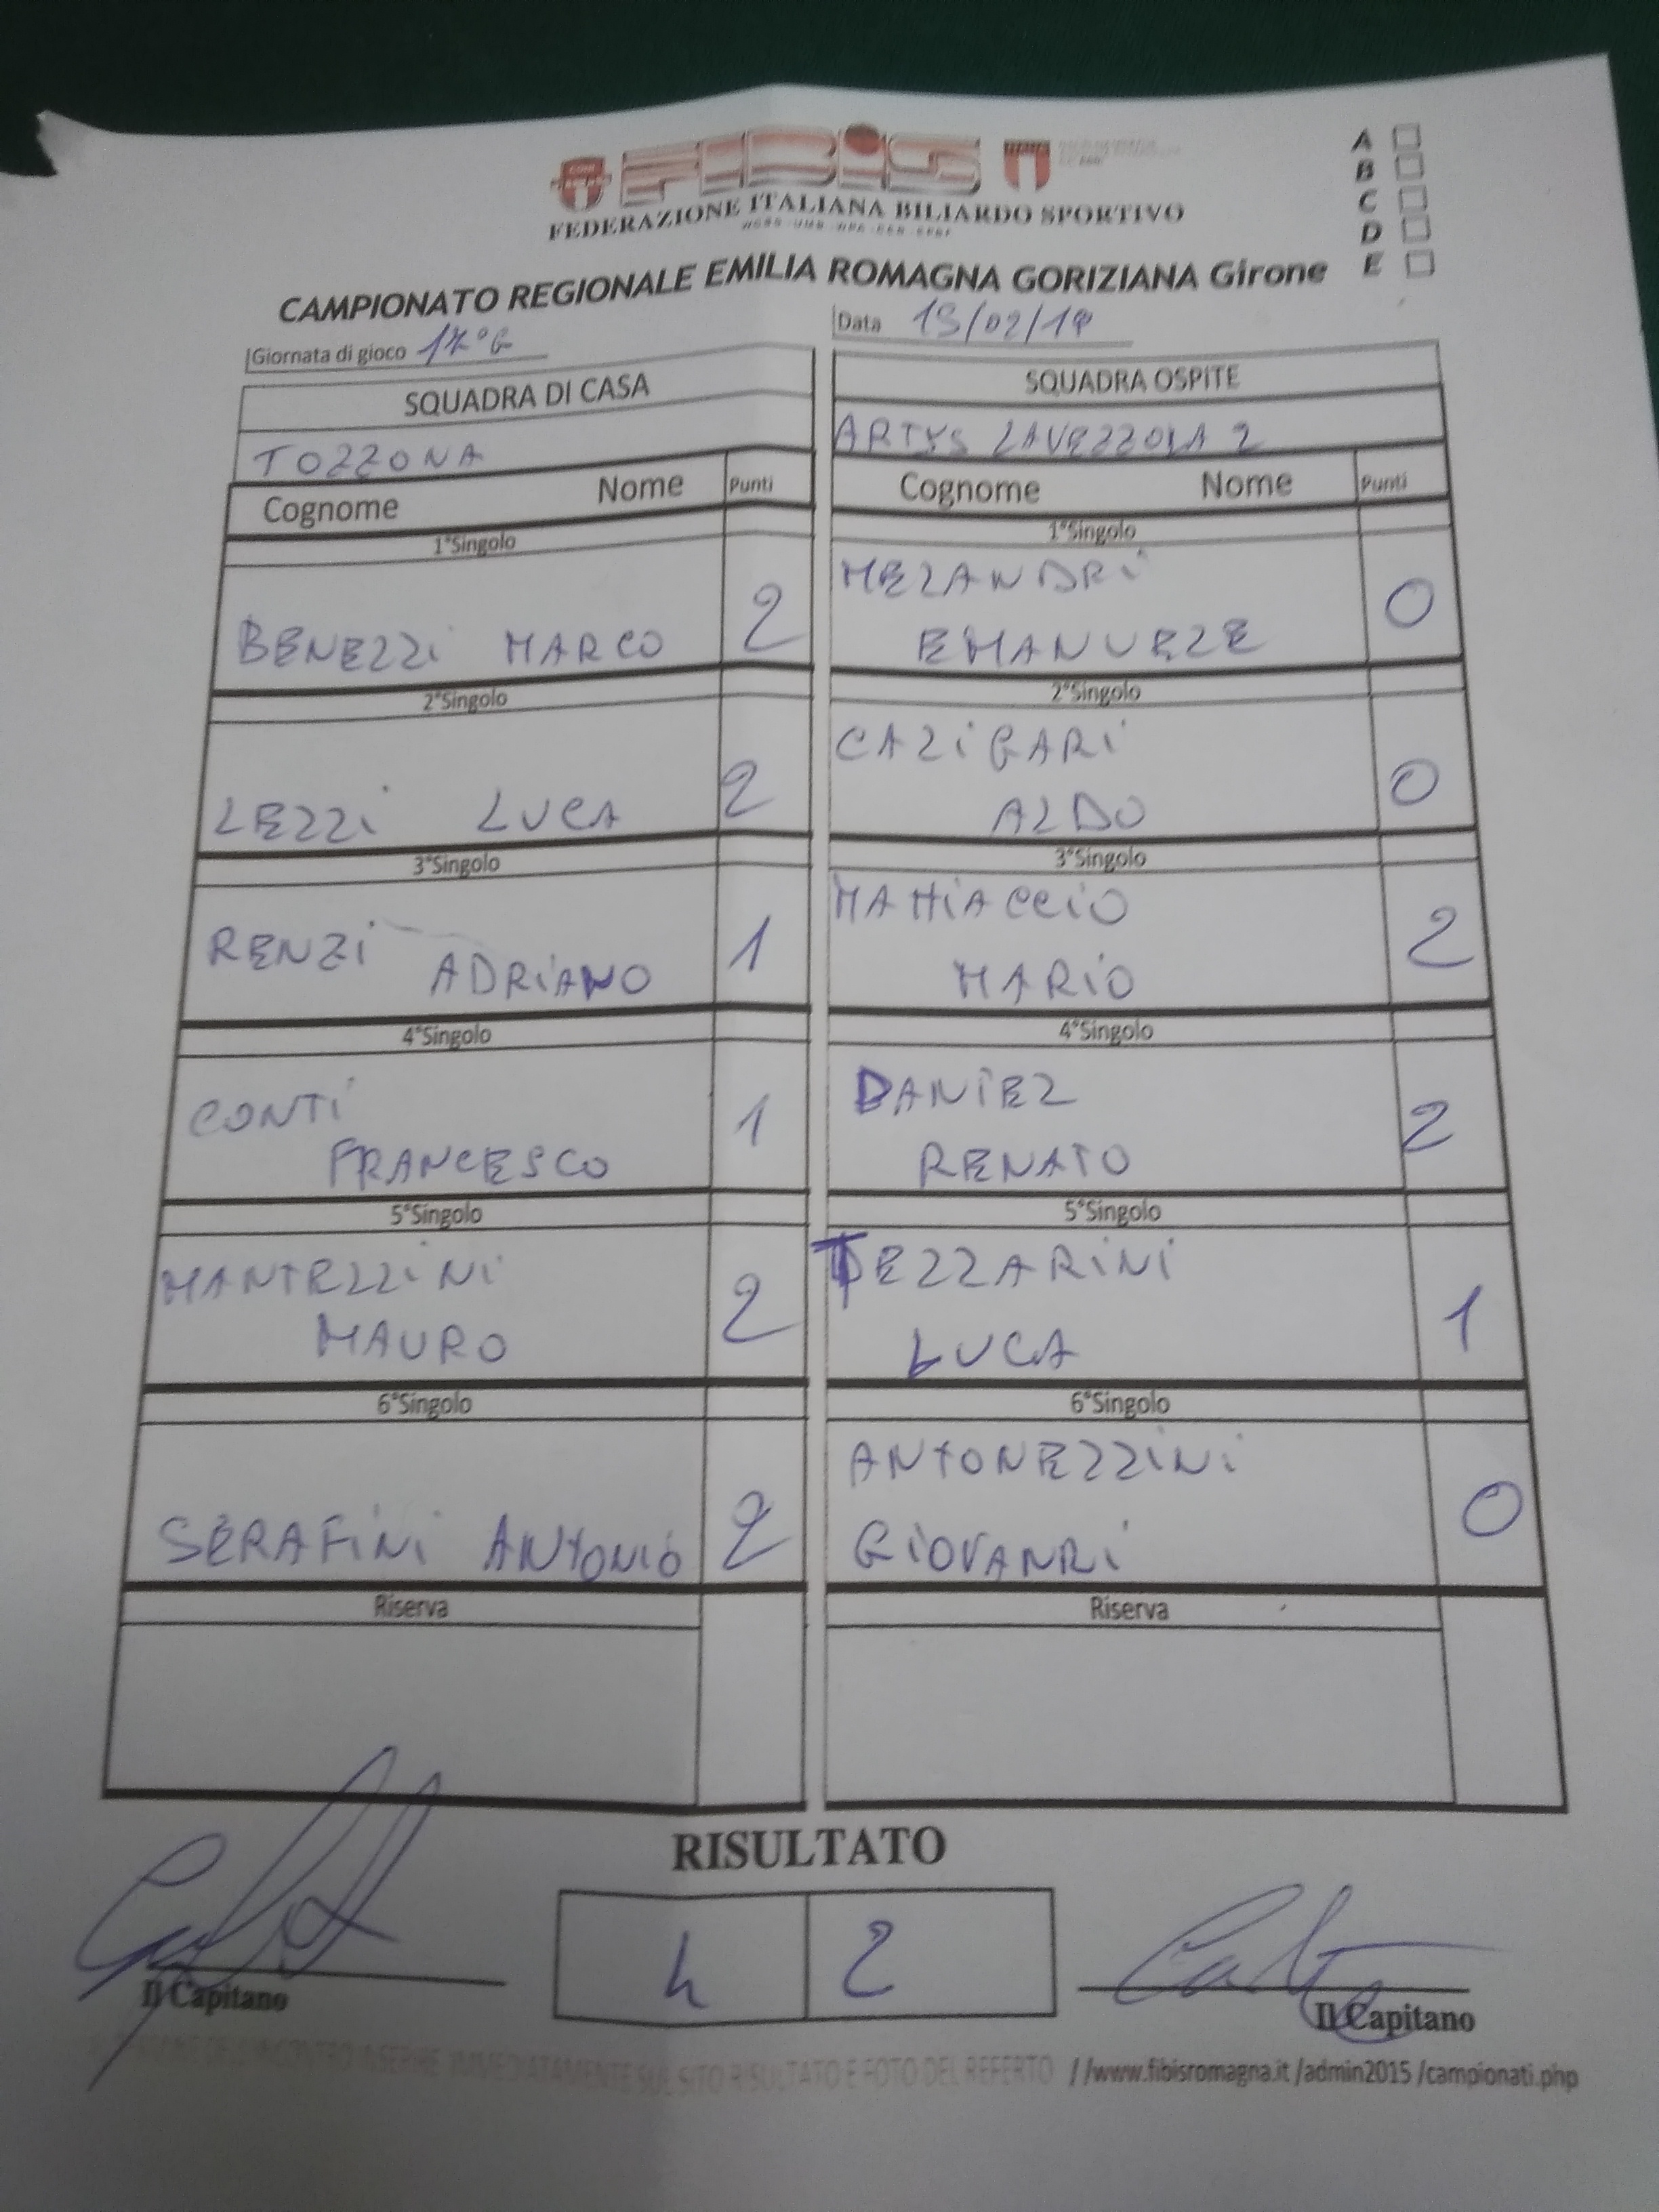 FIBiS
FEDERAZIONE ITALIANA BILIARDO SPORTIVO
A
B
C
D
E
CAMPIONATO REGIONALE EMILIA ROMAGNA GORIZIANA Girone
Giornata di gioco 17°G
Data
SQUADRA DI CASA
SQUADRA OSPITE
TOZZONA
ARTYS LAVEZZOLA 2
Cognome Nome Punti
Cognome Nome Punti
1°Singolo
1°Singolo
BENEZZI MARCO 2
MELANDRI
EMANUELE 0
2°Singolo
2°Singolo
LELLI LUCA 2
CALIGARI
ALDO 0
3°Singolo
3°Singolo
RENZI ADRIANO 1
MARIO 2
4°Singolo
4°Singolo
CONTI
FRANCESCO 1
DANIEL
RENATO 2
5°Singolo
5°Singolo
MANTELLINI
MAURO 2
TEZZARINI
LUCA 1
6°Singolo
6°Singolo
SERAFINI ANTONIO 2
ANTONELLINI
GIOVANNI 0
Riserva
Riserva
RISULTATO
4 2
Il Capitano
Il Capitano
IMMEDIATAMENTE SUL SITO RISULTATO E FOTO DEL REFERTO //www.fibisromagna.it /admin2015 /campionati.php